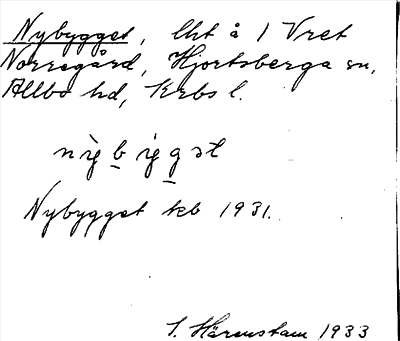 Nybygget, lht å 1 Vret
Norregård, Hjortsberga sn,
Allbo hd, Krbs l.
Nybygget kb 1931.
S. Härenstam 1933